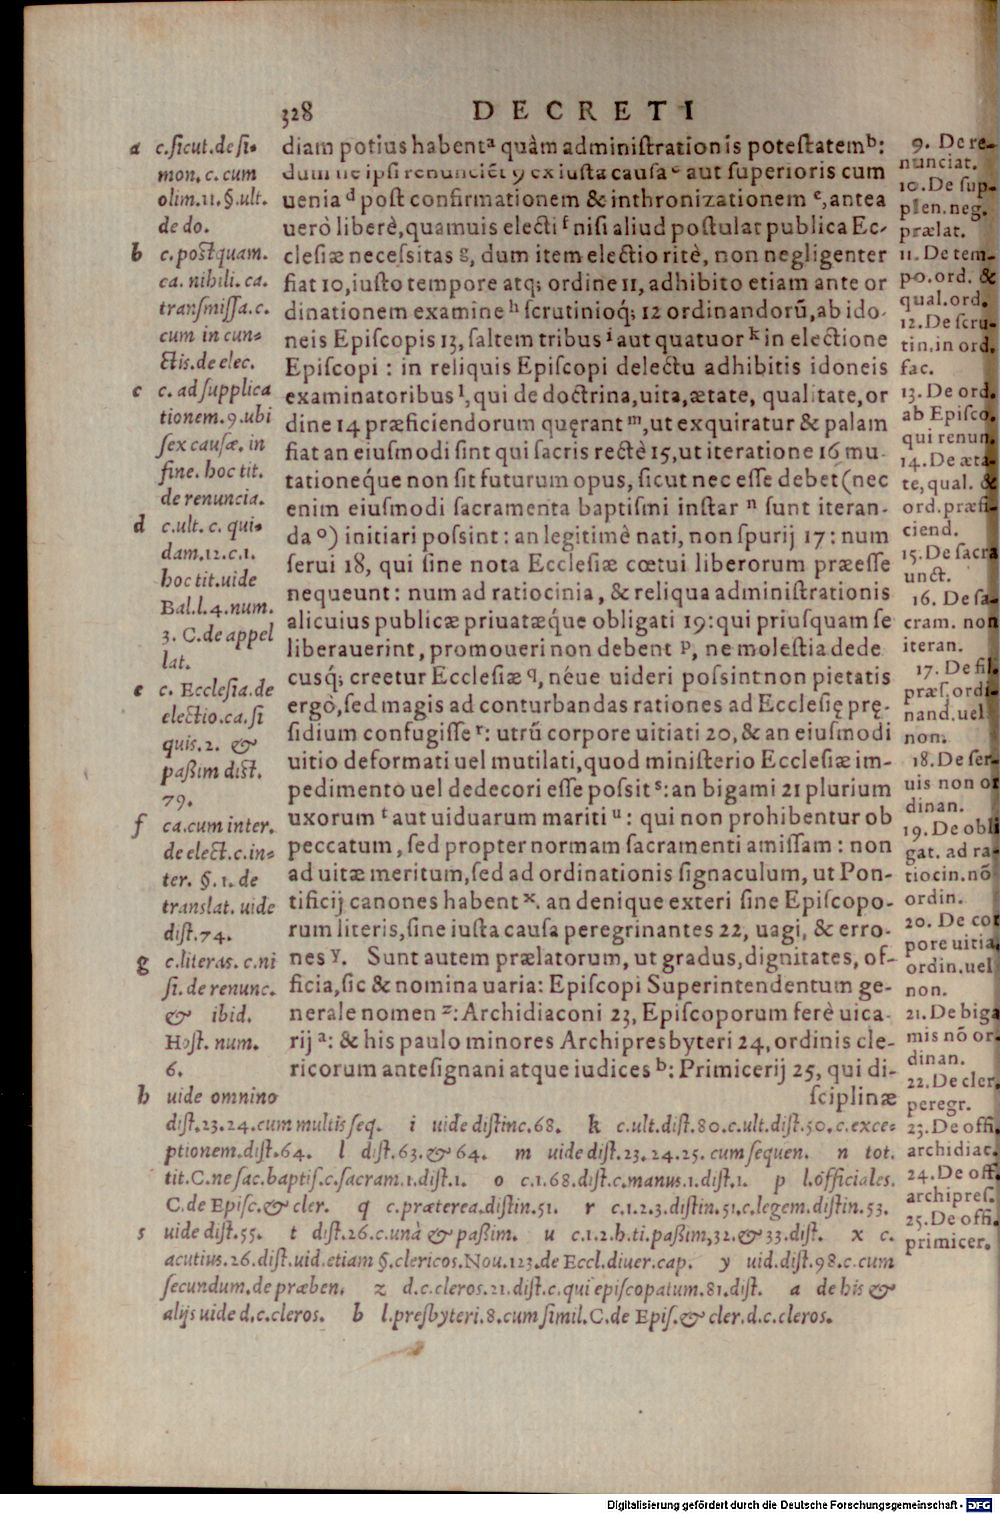 328 DECRETI
diam potius habentᵃ quàm administrationis potestatemᵇ:
dum ne ipsi renunciẽt 9 ex iusta causaᶜ aut superioris cum
uenia ᵈ post confirmationem & inthronizationem ᵉ, antea
uerò liberè, quamuis electi ᶠ nisi aliud postulat publica Ec-
clesiæ necessitas ᵍ, dum item electio ritè, non negligenter
fiat 10, iusto tempore atq; ordine 11, adhibito etiam ante or
dinationem examine ʰ scrutinioq́; 12 ordinandorũ, ab ido-
neis Episcopis 13, saltem tribus ⁱ aut quatuor ᵏ in electione
Episcopi : in reliquis Episcopi delectu adhibitis idoneis
examinatoribus ˡ, qui de doctrina, uita, ætate, qualitate, or
dine 14 præficiendorum quęrant ᵐ, ut exquiratur & palam
fiat an eiusmodi sint qui sacris rectè 15, ut iteratione 16 mu-
tationeq́ue non sit futurum opus, sicut nec esse debet (nec
enim eiusmodi sacramenta baptismi instar ⁿ sunt iteran-
da ᵒ) initiari possint : an legitimè nati, non spurij 17 : num
serui 18, qui sine nota Ecclesiæ cœtui liberorum præesse
nequeunt : num ad ratiocinia, & reliqua administrationis
alicuius publicæ priuatæq́ue obligati 19 : qui priusquam se
liberauerint, promoueri non debent ᵖ, ne molestia dede
cusq́; creetur Ecclesiæ q, néue uideri possint non pietatis
ergò, sed magis ad conturbandas rationes ad Ecclesię prę-
sidium confugisse ʳ: utrũ corpore uitiati 20, & an eiusmodi
uitio deformati uel mutilati, quod ministerio Ecclesiæ im-
pedimento uel dedecori esse possit ˢ: an bigami 21 plurium
uxorum ᵗ aut uiduarum mariti ᵘ : qui non prohibentur ob
peccatum, sed propter normam sacramenti amissam : non
ad uitæ meritum, sed ad ordinationis signaculum, ut Pon-
tificij canones habent ˣ. an denique exteri sine Episcopo-
rum literis, sine iusta causa peregrinantes 22, uagi, & erro-
nes ʸ. Sunt autem prælatorum, ut gradus, dignitates, of-
ficia, sic & nomina uaria: Episcopi Superintendentum ge-
nerale nomen ᶻ: Archidiaconi 23, Episcoporum ferè uica-
rij ᵃ: & his paulo minores Archipresbyteri 24, ordinis cle-
ricorum antesignani atque iudices ᵇ: Primicerij 25, qui di-
sciplinæ
a c.sicut.de si-
mon. c. cum
olim.11.§.ult.
de do.
b c.postquam.
ca. nihili. ca.
transmissa.c.
cum in cun-
ctis.de elec.
c c. ad supplica
tionem.9.ubi
sex causæ. in
fine. hoc tit.
de renuncia.
d c.ult. c. qui-
dam.12.c.1.
hoc tit.uide
Bal.l.4.num.
3. C.de appel
lat.
e c. Ecclesia.de
electio.ca.si
quis.2. &
passim dist.
79.
f ca.cum inter.
de elect.c.in-
ter. §.1.de
translat. uide
dist.74.
g c.literas. c.ni
si.de renunc.
& ibid.
Host. num.
6.
h uide omnino
dist.23.24.cum multis seq. i uide distinc.68. k c.ult.dist.80.c.ult.dist.50.c.exce-
ptionem.dist.64. l dist.63.& 64. m uide dist.23.24.25.cum sequen. n tot.
tit.C.ne sac.baptis.c.sacram.1.dist.1. o c.1.68.dist.c.manus.1.dist.1. p l.officiales.
C.de Episc.& cler. q c.præterea.distin.51. r c.1.2.3.distin.51.c.legem.distin.53.
s uide dist.55. t dist.26.c.unà & passim. u c.1.2.h.ti.passim,32.& 33.dist. x c.
acutius.26.dist.uid.etiam §.clericos.Nou.123.de Eccl.diuer.cap. y uid.dist.98.c.cum
secundum.de præben. z d.c.cleros.21.dist.c.qui episcopatum.81.dist. a de his &
alijs uide d.c.cleros. b l.presbyteri.8.cum simil.C.de Epis.& cler.d.c.cleros.
9. De re-
nunciat.
10. De sup-
plen.neg.
prælat.
11. De tem-
po.ord. &
qual.ord.
12. De scru-
tin.in ord.
fac.
13. De ord.
ab Episco.
qui renun.
14. De æta-
te, qual. &
ord.præfi-
ciend.
15. De sacra
unct.
16. De sa-
cram. non
iteran.
17. De fil.
præs.ordi-
nand.uel
non.
18. De ser-
uis non or
dinan.
19. De obli
gat. ad ra-
tiocin.nõ
ordin.
20. De cor
pore uitia.
ordin.uel
non.
21. De biga
mis nõ or.
dinan.
22. De cler.
peregr.
23. De offi.
archidiac.
24. De off.
archipres.
25. De offi.
primicer.
Digitalisierung gefördert durch die Deutsche Forschungsgemeinschaft - DFG